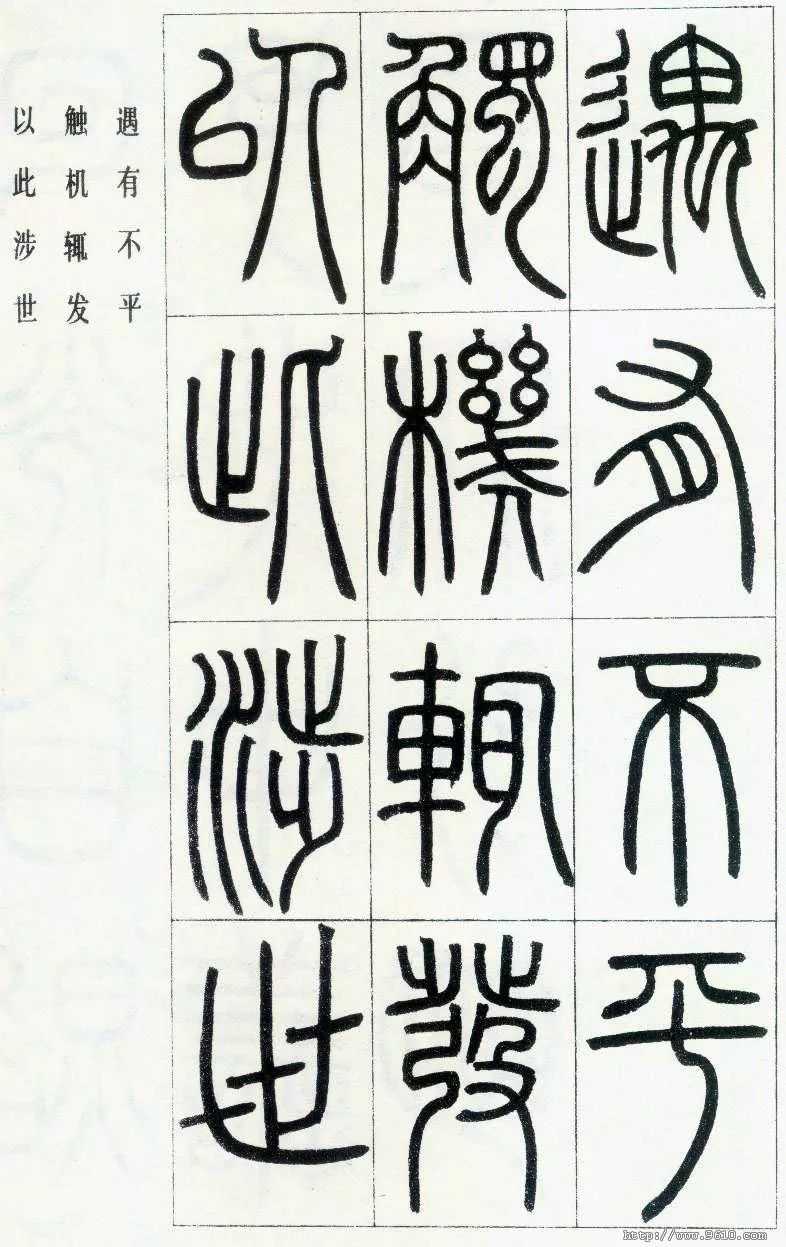 遇有不平
觸機輒發
以此涉世
遇有不平
触机辄发
以此涉世
http://www.9610.com